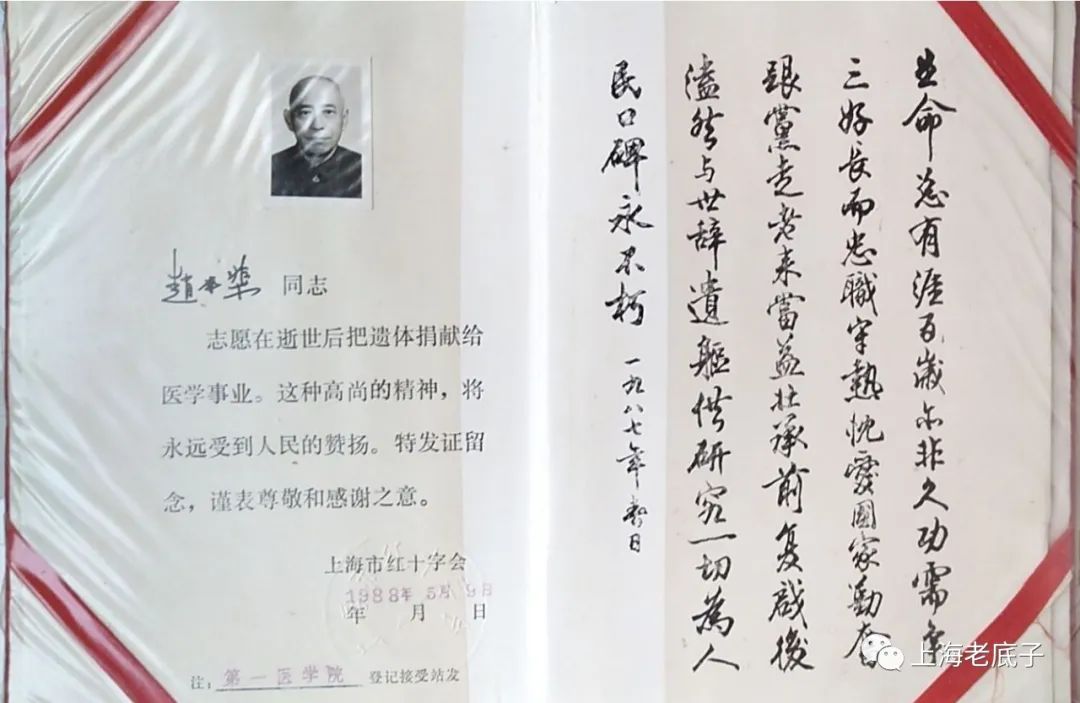 趙本 同志
志愿在逝世后把遗体捐献给
医学事业。这种高尚的精神，将
永远受到人民的赞扬。特发证留
念，谨表尊敬和感谢之意。
上海市红十字会
1988年 5月 9日
年 月 日
注：第一医学院 登记接受站发
生命总有涯百歲亦非久幼需
三好長而忠職守熱忱愛國家勤奋
跟黨走老来當益壮承前复啟後
溘然与世辞遺軀供研究一切為人
民口碑永不朽 一九八七年春日
上海老底子